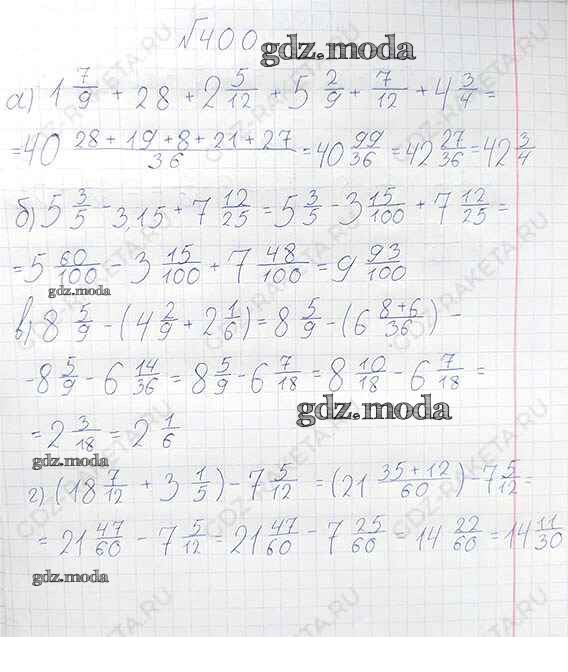 №400
gdz.moda
а) 1 7/9 + 28 + 2 5/12 + 5 2/9 + 7/12 + 4 3/4 =
= 40 (28 + 19 + 8 + 21 + 27)/36 = 40 99/36 = 42 27/36 = 42 3/4
б) 5 3/5 - 3,15 + 7 12/25 = 5 3/5 - 3 15/100 + 7 12/25 =
= 5 60/100 - 3 15/100 + 7 48/100 = 9 93/100
gdz.moda
в) 8 5/9 - (4 2/9 + 2 1/6) = 8 5/9 - (6 (8+6)/36) -
- 8 5/9 - 6 14/36 = 8 5/9 - 6 7/18 = 8 10/18 - 6 7/18 =
gdz.moda
= 2 3/18 = 2 1/6
gdz.moda
г) (18 7/12 + 3 1/5) - 7 5/12 = (21 (35 + 12)/60) - 7 5/12 =
= 21 47/60 - 7 5/12 = 21 47/60 - 7 25/60 = 14 22/60 = 14 11/30
gdz.moda
GDZ-RAKETA.RU